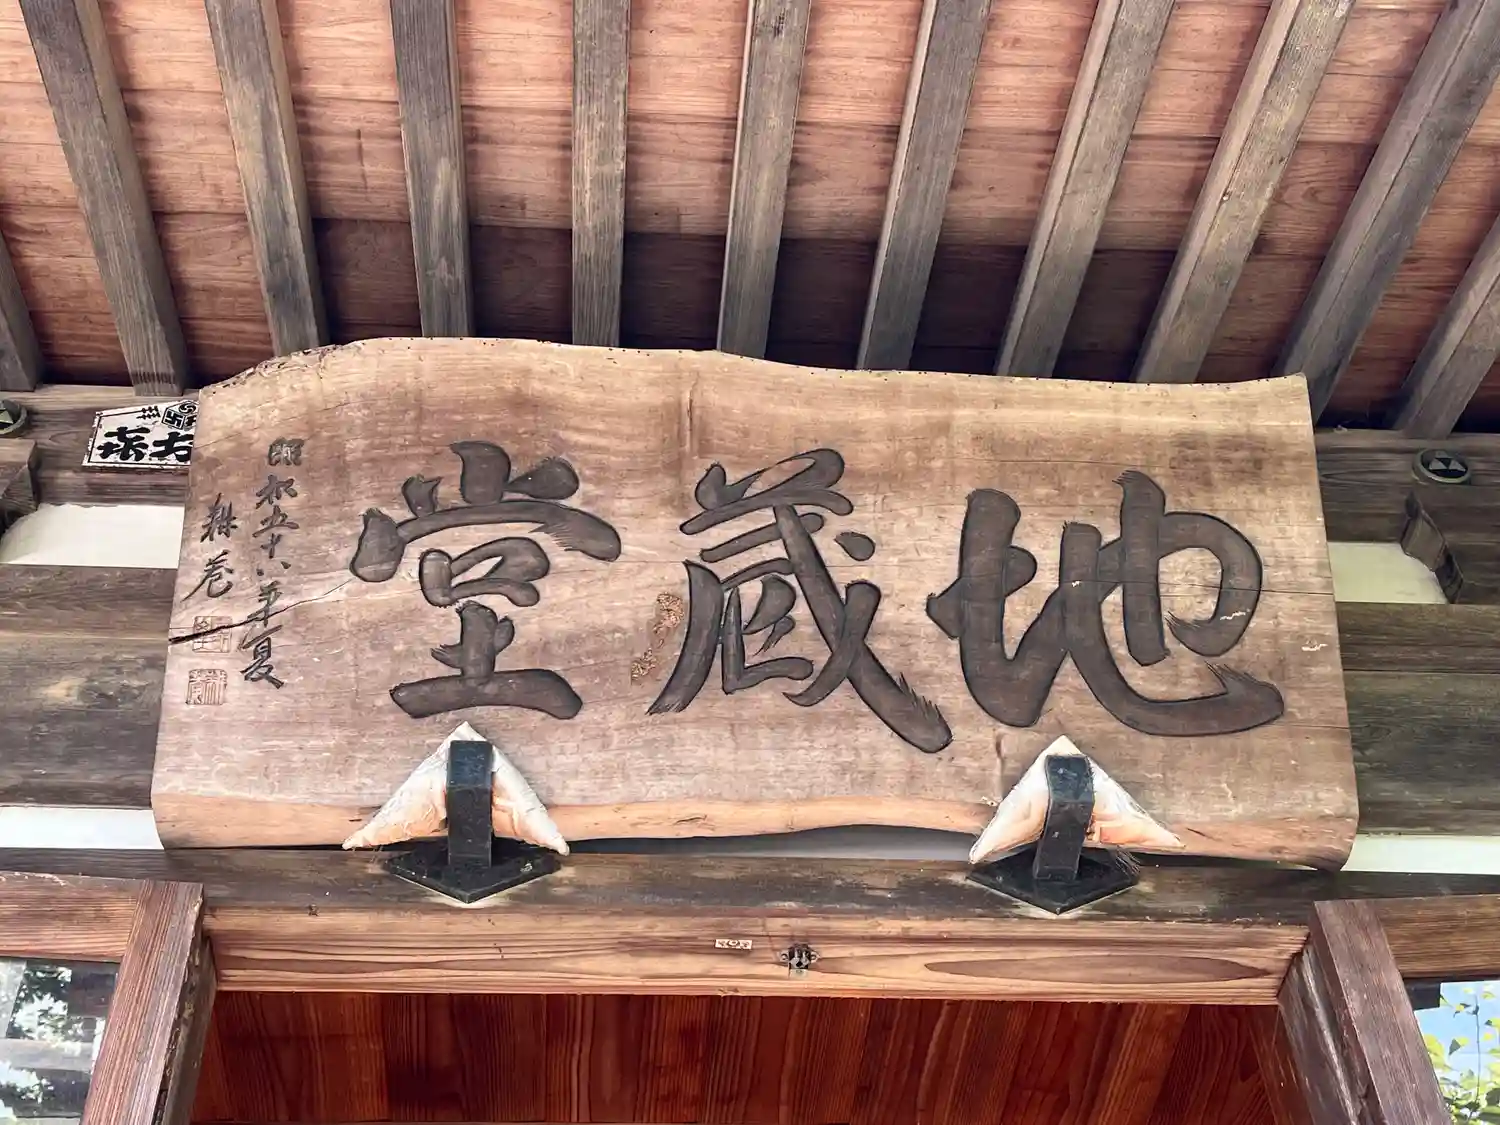 地蔵堂
昭和五十八年夏